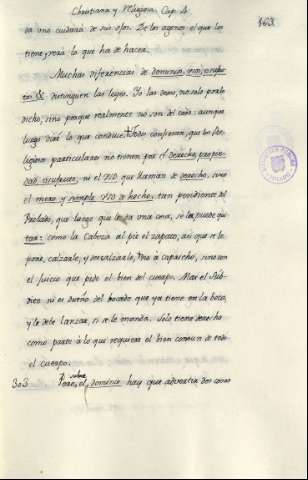 Christiana y Religiosa. Cap. 4.
163
da una cuidará de sus ojos. De los agenos el que los
tiene, verá lo que ha de hacer.
Muchas diferencias de dominio, uso, usufru
cto, &c. distinguen las leyes. Yo las demo, no solo por lo
dicho, sino porque realmente no son del caso: aunque
luego diré lo que conduce. Todos confiesan, que los Re-
ligiosos particulares no tienen por sí derecho, propie-
dad, usufructo, ni el uso que llaman de derecho, sino
el mero y simple uso de hecho, tan pendiente del
Prelado, que luego que le da una cosa, se la puede qui-
tar: como la Cabeza al pie el zapato, así que se le
pone, calzarle, y descalzarle, no a capricho, sino con
el juicio que pide el bien del cuerpo. Mas el Súb-
dito ni es dueño del bocado que ya tiene en la boca,
y le debe lanzar, si se le manda. Solo tiene derecho
como parte à lo que requiere el bien comun de todo
el cuerpo.
303 Pues, sobre el dominio hay que advertir dos cosas